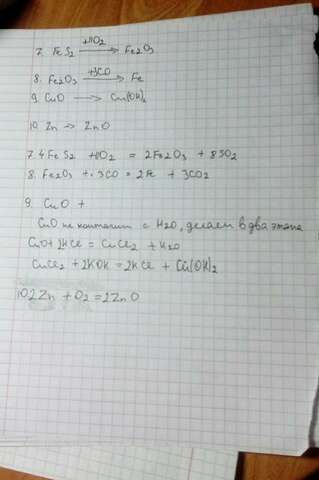 7. FeS2 +11O2 → Fe2O3
8. Fe2O3 +3CO → Fe
9. CuO → Cu(OH)2
10. Zn → ZnO
7. 4FeS2 +11O2 = 2Fe2O3 + 8SO2
8. Fe2O3 + 3CO = 2Fe + 3CO2
9. CuO +
CuO не контачит с H2O, делаем в два этапа
CuO+2HCl = CuCl2 + H2O
CuCl2 + 2KOH = 2KCl + Cu(OH)2
10. 2Zn + O2 = 2ZnO